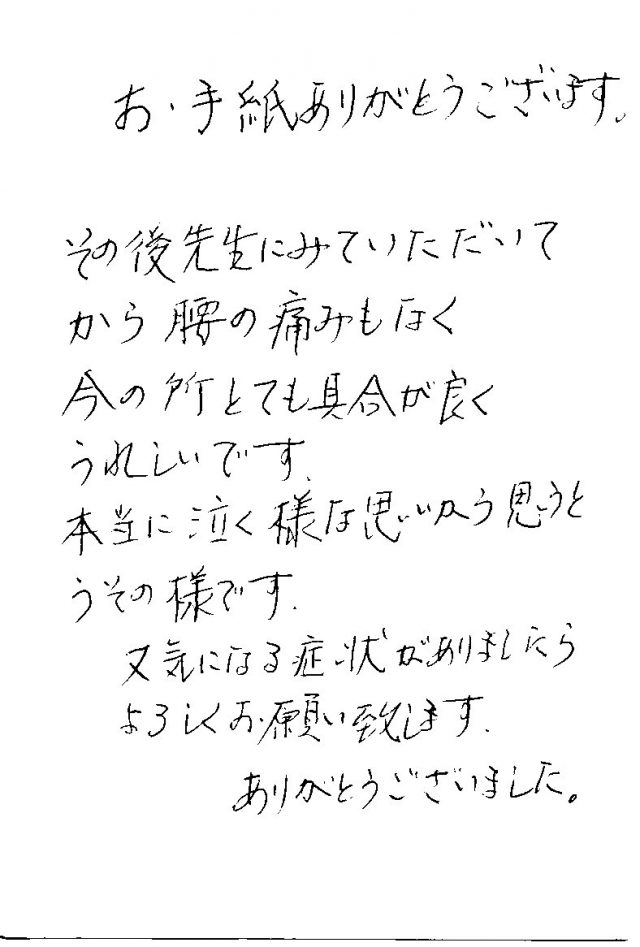 お手紙ありがとうございます。
その後先生にみていただいて
から腰の痛みもなく
今の所とても具合が良く
うれしいです.
本当に泣く様な思いから思うと
うその様です.
又気になる症状がありましたら
よろしくお願い致します.
ありがとうございました。